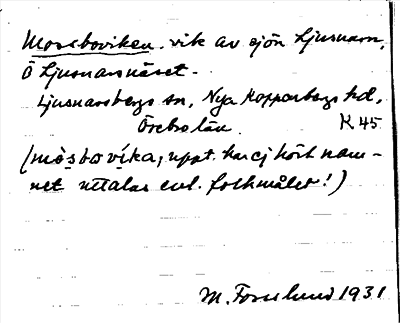 Mossboviken. vik av sjön Ljusnarn,
Ö Ljusnarsnäset.
Ljusnarsbergs sn, Nya Kopparbergs hd,
Örebro län. K 45
(mòsbovíka, uppt. har ej hört nam-
net uttalas enl. folkmålet!)
M. Forslund 1931